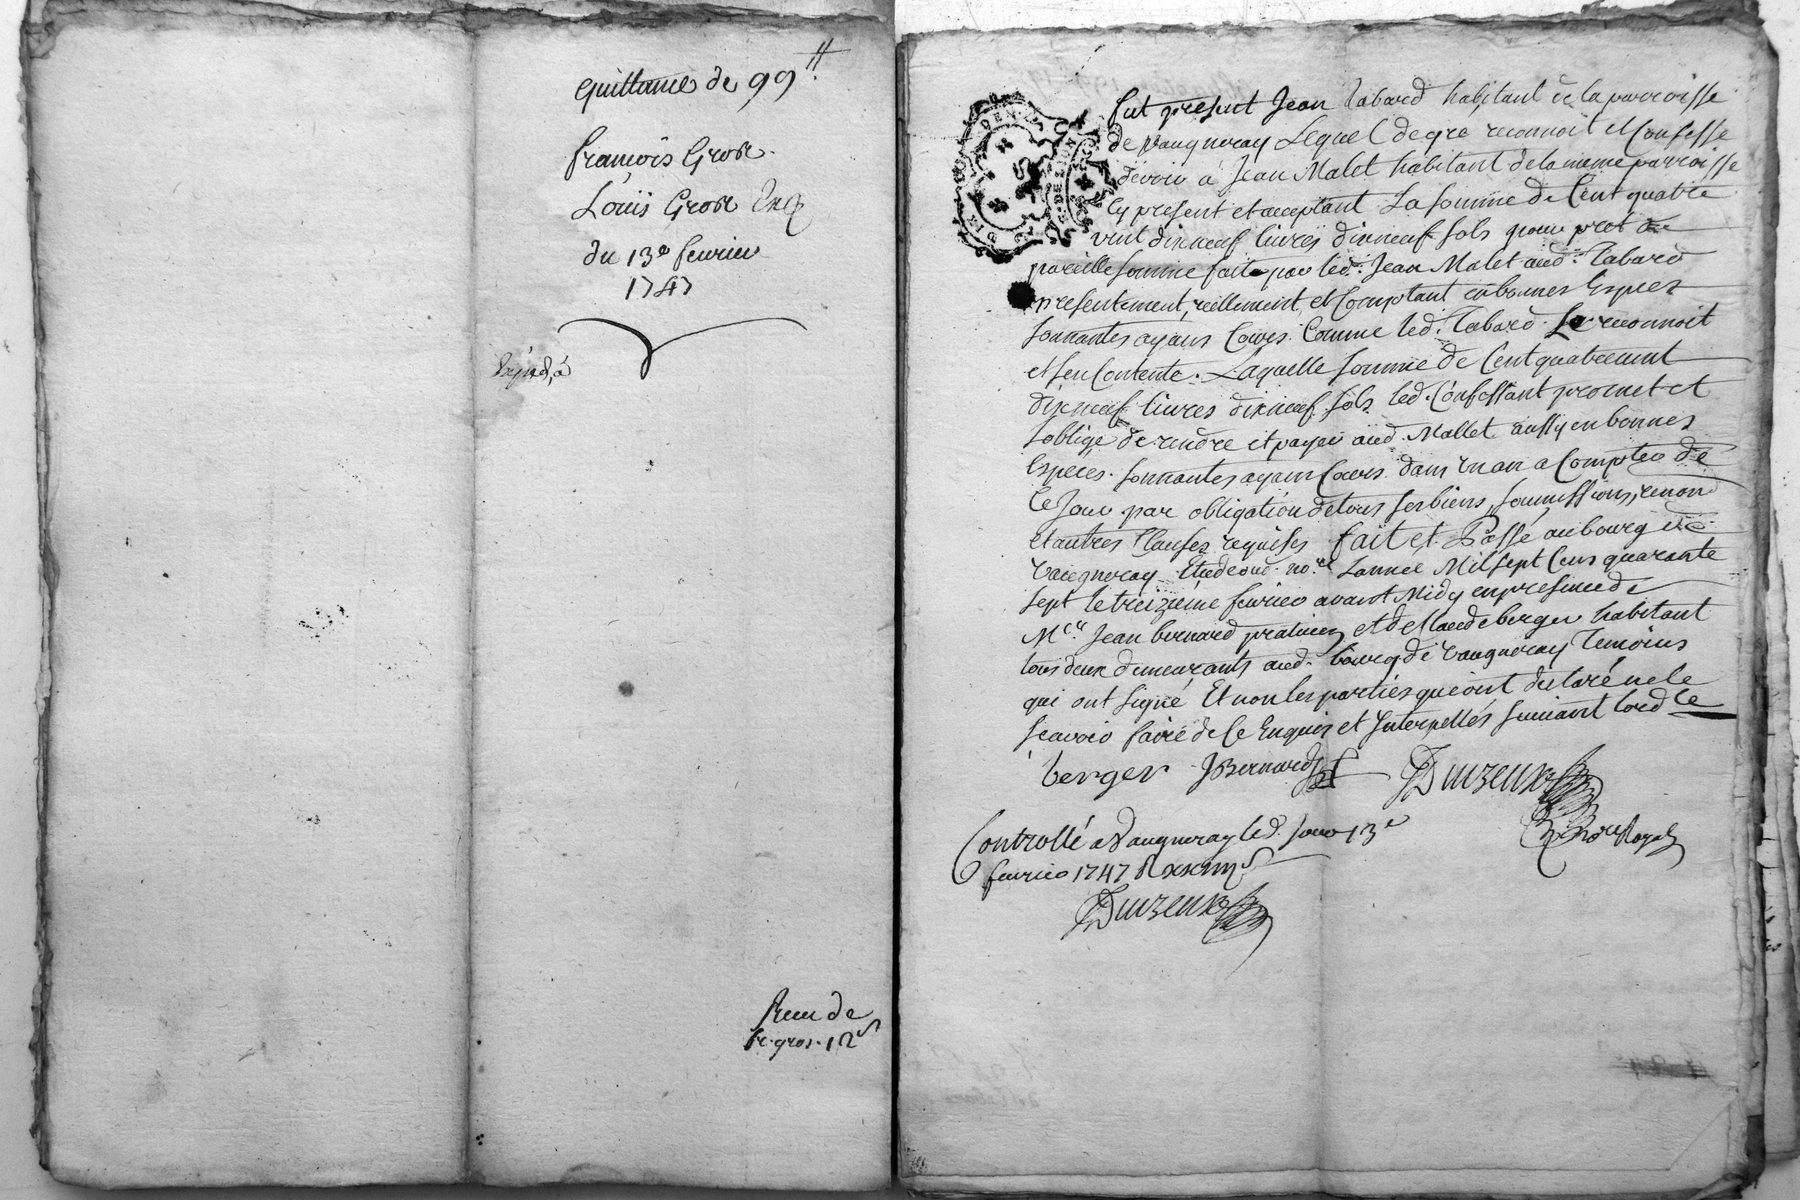 quittance de 99 ₶.
françois Gros
Loüis Gros
du 13e feurier
1747
Expéd, à
Receu de
fr. gros. 12 s
fut present Jean Tabard habitant de la parroisse
de Vaugneray Lequel de gré reconnoit et Confesse
devoir à Jean Malet habitant de la meme parroisse
Cy present et acceptant La somme de Cent quatre
vint dixneuf livres dixneuf sols pour pret de
pareille somme faite par led. Jean Malet aud. Tabard
presentement, réellement et Comptant en bonnes Espèces
sonnantes ayans Cours. Comme led. Tabard. Le reconnoit
et s'en Contente. Laquelle somme de Cent quatrevint
dixneuf livres dixneuf sols led. Confessant promet et
s'oblige de rendre et payer aud. Mallet aussy en bonnes
Especes. sonnantes ayans Cours dans un an a Compter de
Ce Jour par obligation de tous ses biens, soumissions, renon
et autres Clauses requises fait et Passé au bourg de
Vaugneray Etude dud. no.re Lannee Mil sept Cens quarante
sept le treizieme feurier avant Midy en presence de
Me. Jean bernard praticien et de Claude berger habitant
tous deux demeurants aud. bourg de Vaugneray Temoins
qui ont signé Et non les parties qui ont declaré ne le
scavoir faire de Ce Enquis et Interpellés suiuant lord ce
berger JBernard
no.re Royal
Controllé a Vaugneray led. Jour 13e
feurier 1747 R